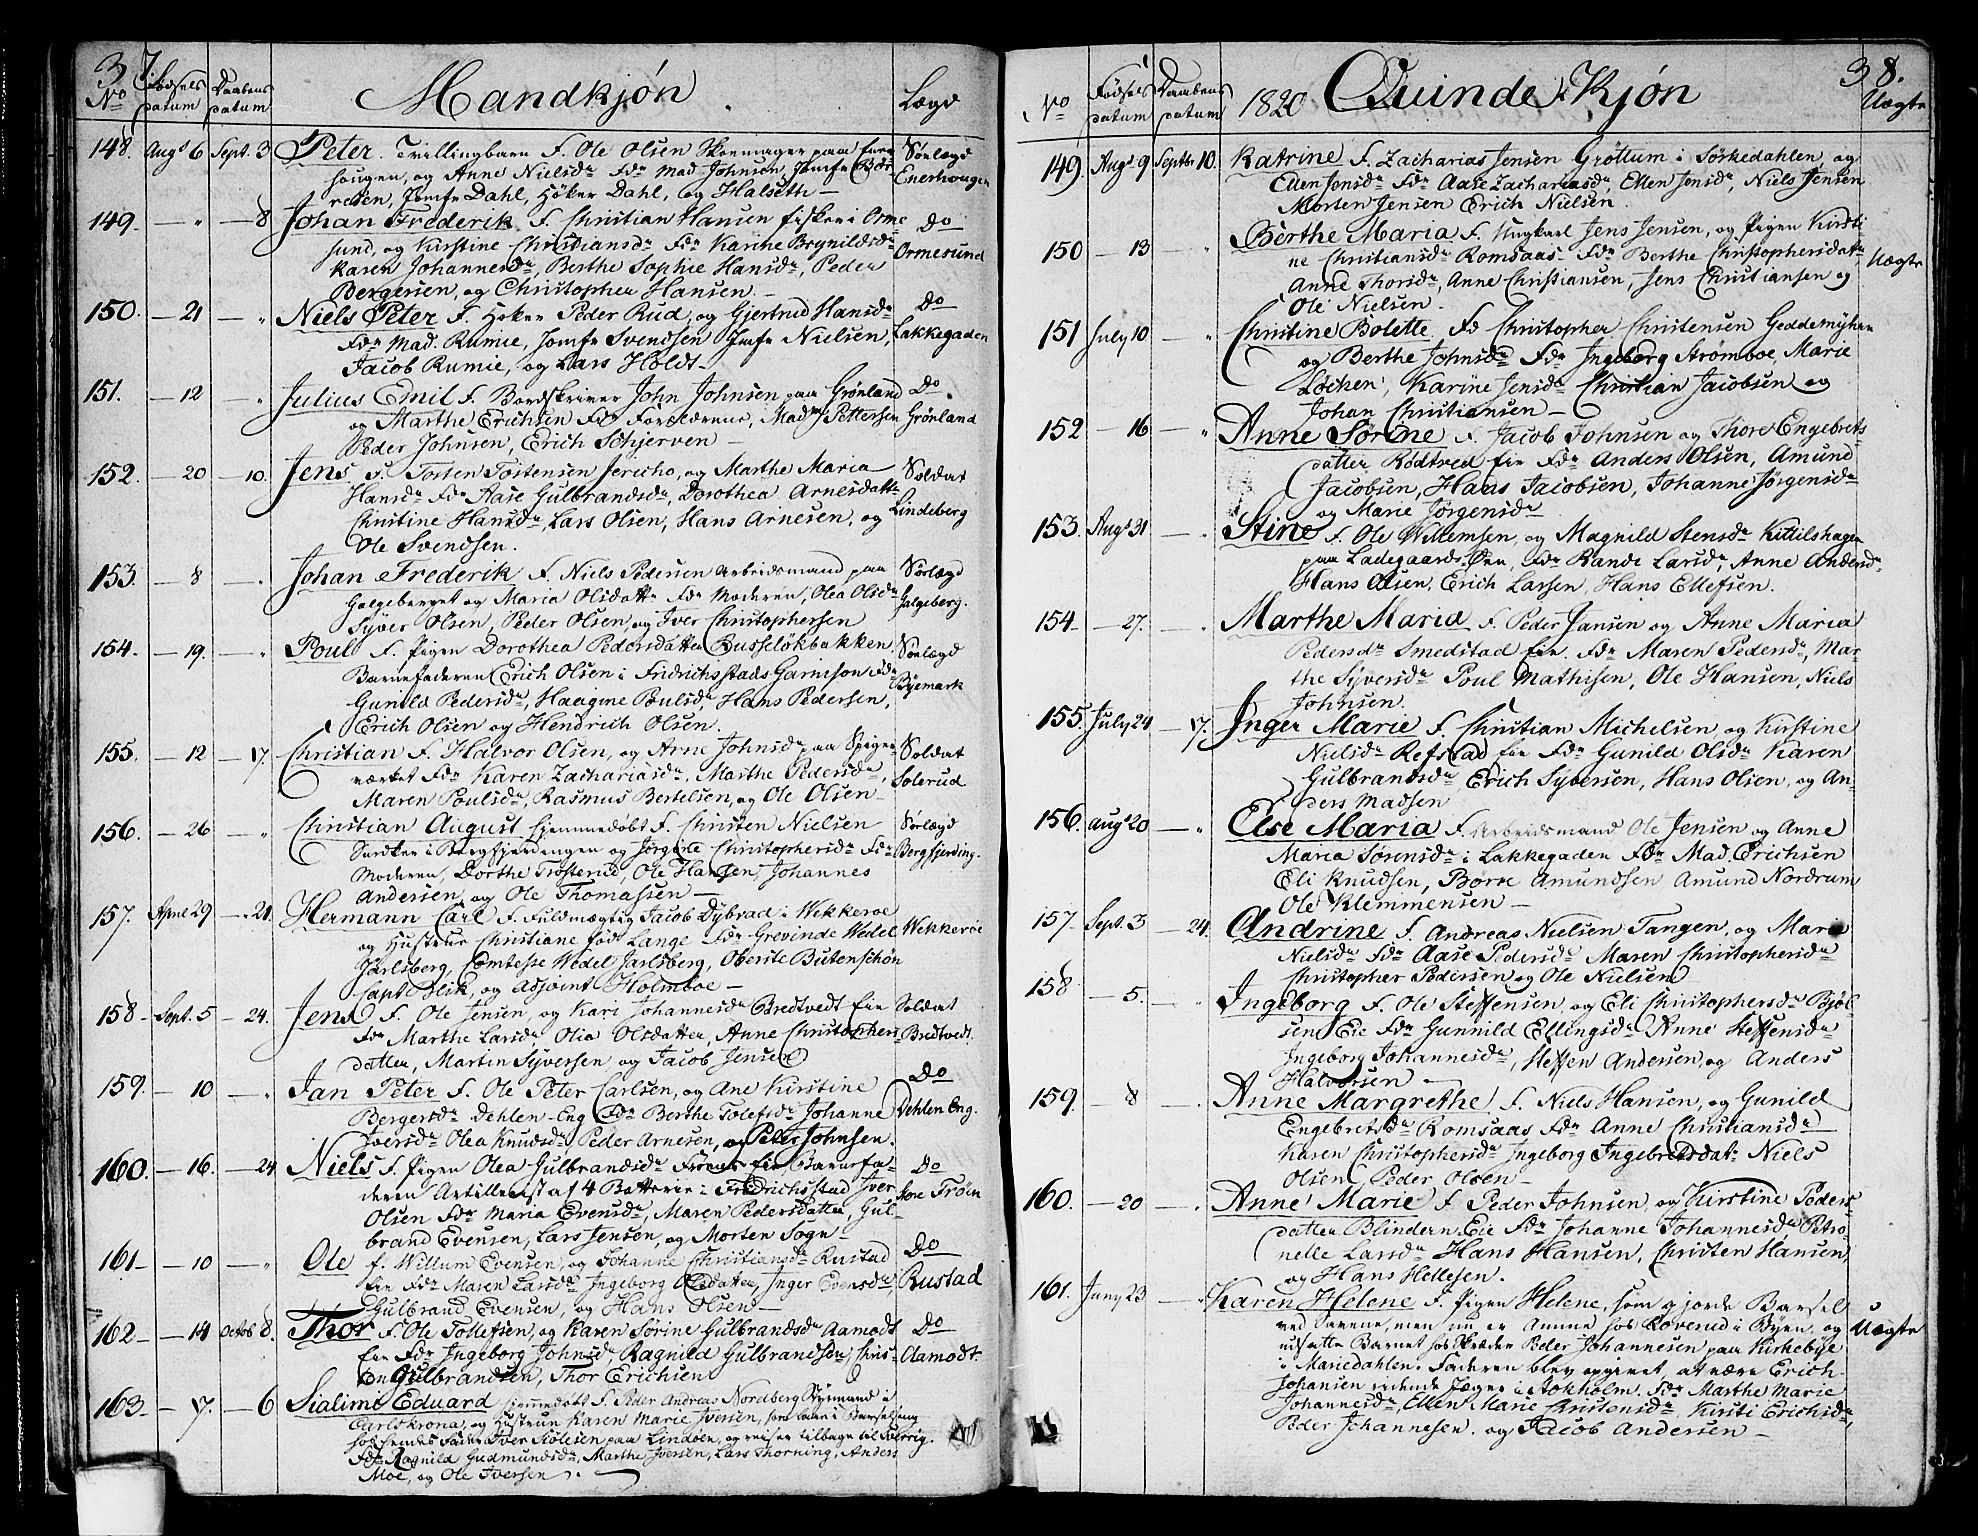 37.
No Fødsels Daabens Mandkjón Lægd
datum datum
148. Augs 6 Sept. 3 Peter. Tvillingbarn F. Ole Olsen Skoemager paa Ener Sørlægd
hougen, og Anne Nielsda Fdr Mad. Johnsen, Jomfr Bør Enerhougen
resen, Jomfr Dahl, Høker Dahl, og Halseth
149. — " — 8 Johan Frederik F. Christian Hansen fisker i Orme Do
sund, og Kirstine Christiansda Fdr Karine Brynildsda Ormesund
Karen Johannesda, Berthe Sophie Hansda, Peder
Bergersen, og Christopher Hansen.
150. — 21 — " Niels Peter F. Høker Peder Rud, og Gjertrud Hansda Do
Fdr Mad. Rumie, Jomfr Svendsen Jmfr Nielsen, Lakkegaden
Jacob Rumie, og Lars Holdt
151. — 12 — " Julius Emil F. Bordskriver John Johnsen paa Grønland Do
og Marthe Erichsen Fdr Forældrene, Mads Pettersen Grønland
Peder Johnsen, Erich Schjerven
152. — 20 — 10. Jens F. Tosten Tostensen Jericho, og Marthe Maria Soldat
Hansda Fdr Aase Gulbrandsda, Dorothea Arnesdattr Lindeberg
Christine Hansda, Lars Olsen, Hans Arnesen, og
Ole Svendsen.
153. — 8 — " Johan Frederik F. Niels Pedersen Arbeidsmand paa Sørlægd
Galgeberget og Maria Olsdattr Fdr Moderen, Olea Olsda Galgeberg.
Syver Olsen, Peder Olsen, og Iver Christophersen
154. — 19. — " Poul F. Pigen Dorothea Pedersdatter Russeløkbakken Sørlægd
Barnefaderen Erich Olsen i Fridrichsstads Garnison Fdr Byemark
Gunild Pedersda, Haagine Poulsda, Hans Pedersen,
Erich Olsen og Hendrich Olsen.
155. — 12 — 17. Christian F. Halvor Olsen, og Arne Johnsda paa Spiger Soldat
værket Fdr Karen Zachariasda, Marthe Pedersda, Solerud
Maren Poulsda, Rasmus Bertelsen, og Ole Olsen
156. — 26 — " Christian August hjemmedøbt F. Christen Nielsen Sørlægd
Snedker i Bergfjerdingen og Jørgine Christophersda Fdr Bergfjerding.
Moderen, Dorthe Trosterud, Ole Hansen, Johannes
Andersen, og Ole Thomassen
157. April 29 — 21. Hermann Carl F. Fuldmægtig Jacob Dybrad i Wekkerøe
og Hustrue Christiane fød Lange Fdr Grevinde Wedel Wekkerøe
Jarlsberg, Comtesse Wedel Jarlsberg, Oberste Butenschøn
Capt Blik, og Adjoint Holmboe
158 Sept. 5 — 24. Jens F. Ole Jensen, og Kari Johannesda Bredtvedt Eie Soldat
Fdr Marthe Larsda Olia Olsdatter, Anne Christophers Bredtvedt.
datter, Martin Syversen, og Jacob Jensen
159. — 10 — " Jan Peter F. Ole Peter Carlsen, og Ane Kirstine Do
Bergersda Dehlen-Eng Fdr Berthe Tolefsda Johanne Dehlen Eng.
Iversda Olea Knudsda Peder Arnesen, og Peter Johnsen.
160. — 16. — 24. Niels F. Pigen Olea Gulbrandsda Frøen Eie, Barnefa- Do
deren Artillerist af 4 Batterie i Fridrichsstad Iver Sore Frøen
Olsen Fdr Maria Evensda, Maren Pedersdatter Gul-
brand Evensen, Lars Jensen, og Morten Sogn
161 — 10 — " Ole F. Willum Evensen, og Johanne Christiansda Rustad Do
Eie Fdr Maren Larsda Ingeborg Olsdatter, Inger Evensda Rustad
Gulbrand Evensen, og Hans Olsen
162 — 14 Octob 8. Thor F. Ole Tollefsen, og Karen Sørine Gulbrandsda Aamodt Do
Eie Fdr Ingeborg Johnsda, Ragnild Gulbrandsda, Chris- Aamodt.
ten Gulbrandsen, Thor Erichsen
163 — 7. — 6 Sialime Eduard hjemmedøbt F. Peder Andreas Nordberg Styrmand i
Carlskrona, og Hustrue Karen Marie Iversen, som laae i Barselseng
hos hendes Fader Iver Stolesen paa Lindøen, og reiser tilbage til Sverrig.
Fdr Ragnild Gudmundsda, Marthe Iversen, Lars Thorning, Anders
Moe, og Ole Iversen
38.
No Fødsels Daabens 1820 Quinde Kjøn Uægte
datum datum
149. Augs 9 Septbr 10. Katrine F. Zacharias Jensen Grøttum i Sørkedahlen, og
Ellen Jensda Fdr Aase Zachariasda, Ellen Jensda, Niels Jensen
Morten Jensen Erich Nielsen.
150 — 13 — " Berthe Maria F. Ungkarl Jens Jensen, og Pigen Kirsti-
ne Christiansda Romsaas Fdr Berthe Christophersdatr Uægte
Anne Thorsda, Anne Christiansen, Jens Christiansen og
Ole Nielsen.
151 July 10 — " Christine Bolette Fd Christopher Christensen Geddemyhren
og Berthe Johnsda Fdr Ingeborg Strømboe, Marie
Løchen, Karine Jensda Christian Jacobsen og
Johan Christiansen
152 — 16 — " Anne Sørine F. Jacob Johnsen og Thore Engebrets-
datter Rødtved Eie Fdr Anders Olsen, Amund
Jacobsen, Hans Jacobsen, Johanne Jørgensda
og Marie Jørgensda
153. Augs 31 — " Stine F. Ole Willemsen, og Magnild Stensda Kittilshagen
paa Ladegaards Øen, Fdr Rande Larsda, Anne Andersda
Hans Olsen, Erich Larsen, Hans Ellefsen.
154 — 27. — " Marthe Maria F. Peder Jansen og Anne Maria
Pedersda Smedstad Eie. Fdr Maren Pedersda, Mar-
the Syversda Poul Mathisen, Ole Hansen, Niels
Johnsen.
155. July 24 — 17. Inger Marie F. Christian Michelsen, og Kirstine
Nielsda Refstad Eie Fdr Gunild Olsda Karen
Gulbrandsda Erich Syversen, Hans Olsen, og An-
ders Madsen
156. Augs 20 — " Else Maria F. Arbeidsmand Ole Jensen, og Anne
Maria Sørensda i Lakkegaden Fdr Mad. Erichsen
Eli Knudsen, Børre Amundsen Amund Nordrum
Ole Klemmensen
157. Sept. 3 — 24. Andrine F. Andreas Nielsen Tangen, og Maria
Nielsda Fdr Aase Pedersda Maren Christophersda
Christopher Pedersen og Ole Nielsen
158 — 5. — " Ingeborg F. Ole Steffensen, og Eli Christophersda Bjøl-
sen Eie Fdr Gunnild Ellingsda Anne Steffensda
Ingeborg Johannesda, Steffen Andersen, og Anders
Halvorsen
159. — 8 — " Anne Margrethe F. Niels Hansen, og Gunild
Engebretsda Romsaas Fdr Anne Christiansda
Karen Christophersda Ingeborg Ingebretsdatr Niels
Olsen, Peder Olsen
160. — 20 — " Anne Marie F. Peder Johnsen, og Kirstine Peders-
datter Blindern-Eie Fdr Johanne Johannesda Petro
nelle Larsda Hans Hansen, Christen Hansen,
og Hans Hellesen.
161. Juny 23 — " Karen Helene F. Pigen Helene, som gjorde Barsel
ved Savene, men nu er Amme hos Loverud i Byen, og Uægte
udsatte Barnet hos Skræder Peder Johannesen paa Kirkebye
i Mariedahlen. Faderen blev opgivet, at være Erich
Johansen ridende Jæger i Stokholm. Fdr Marthe Marie
Johannesda, Ellen Marie Christensda Kirsti Erichsda,
Peder Johannesen. og Jacob Andersen